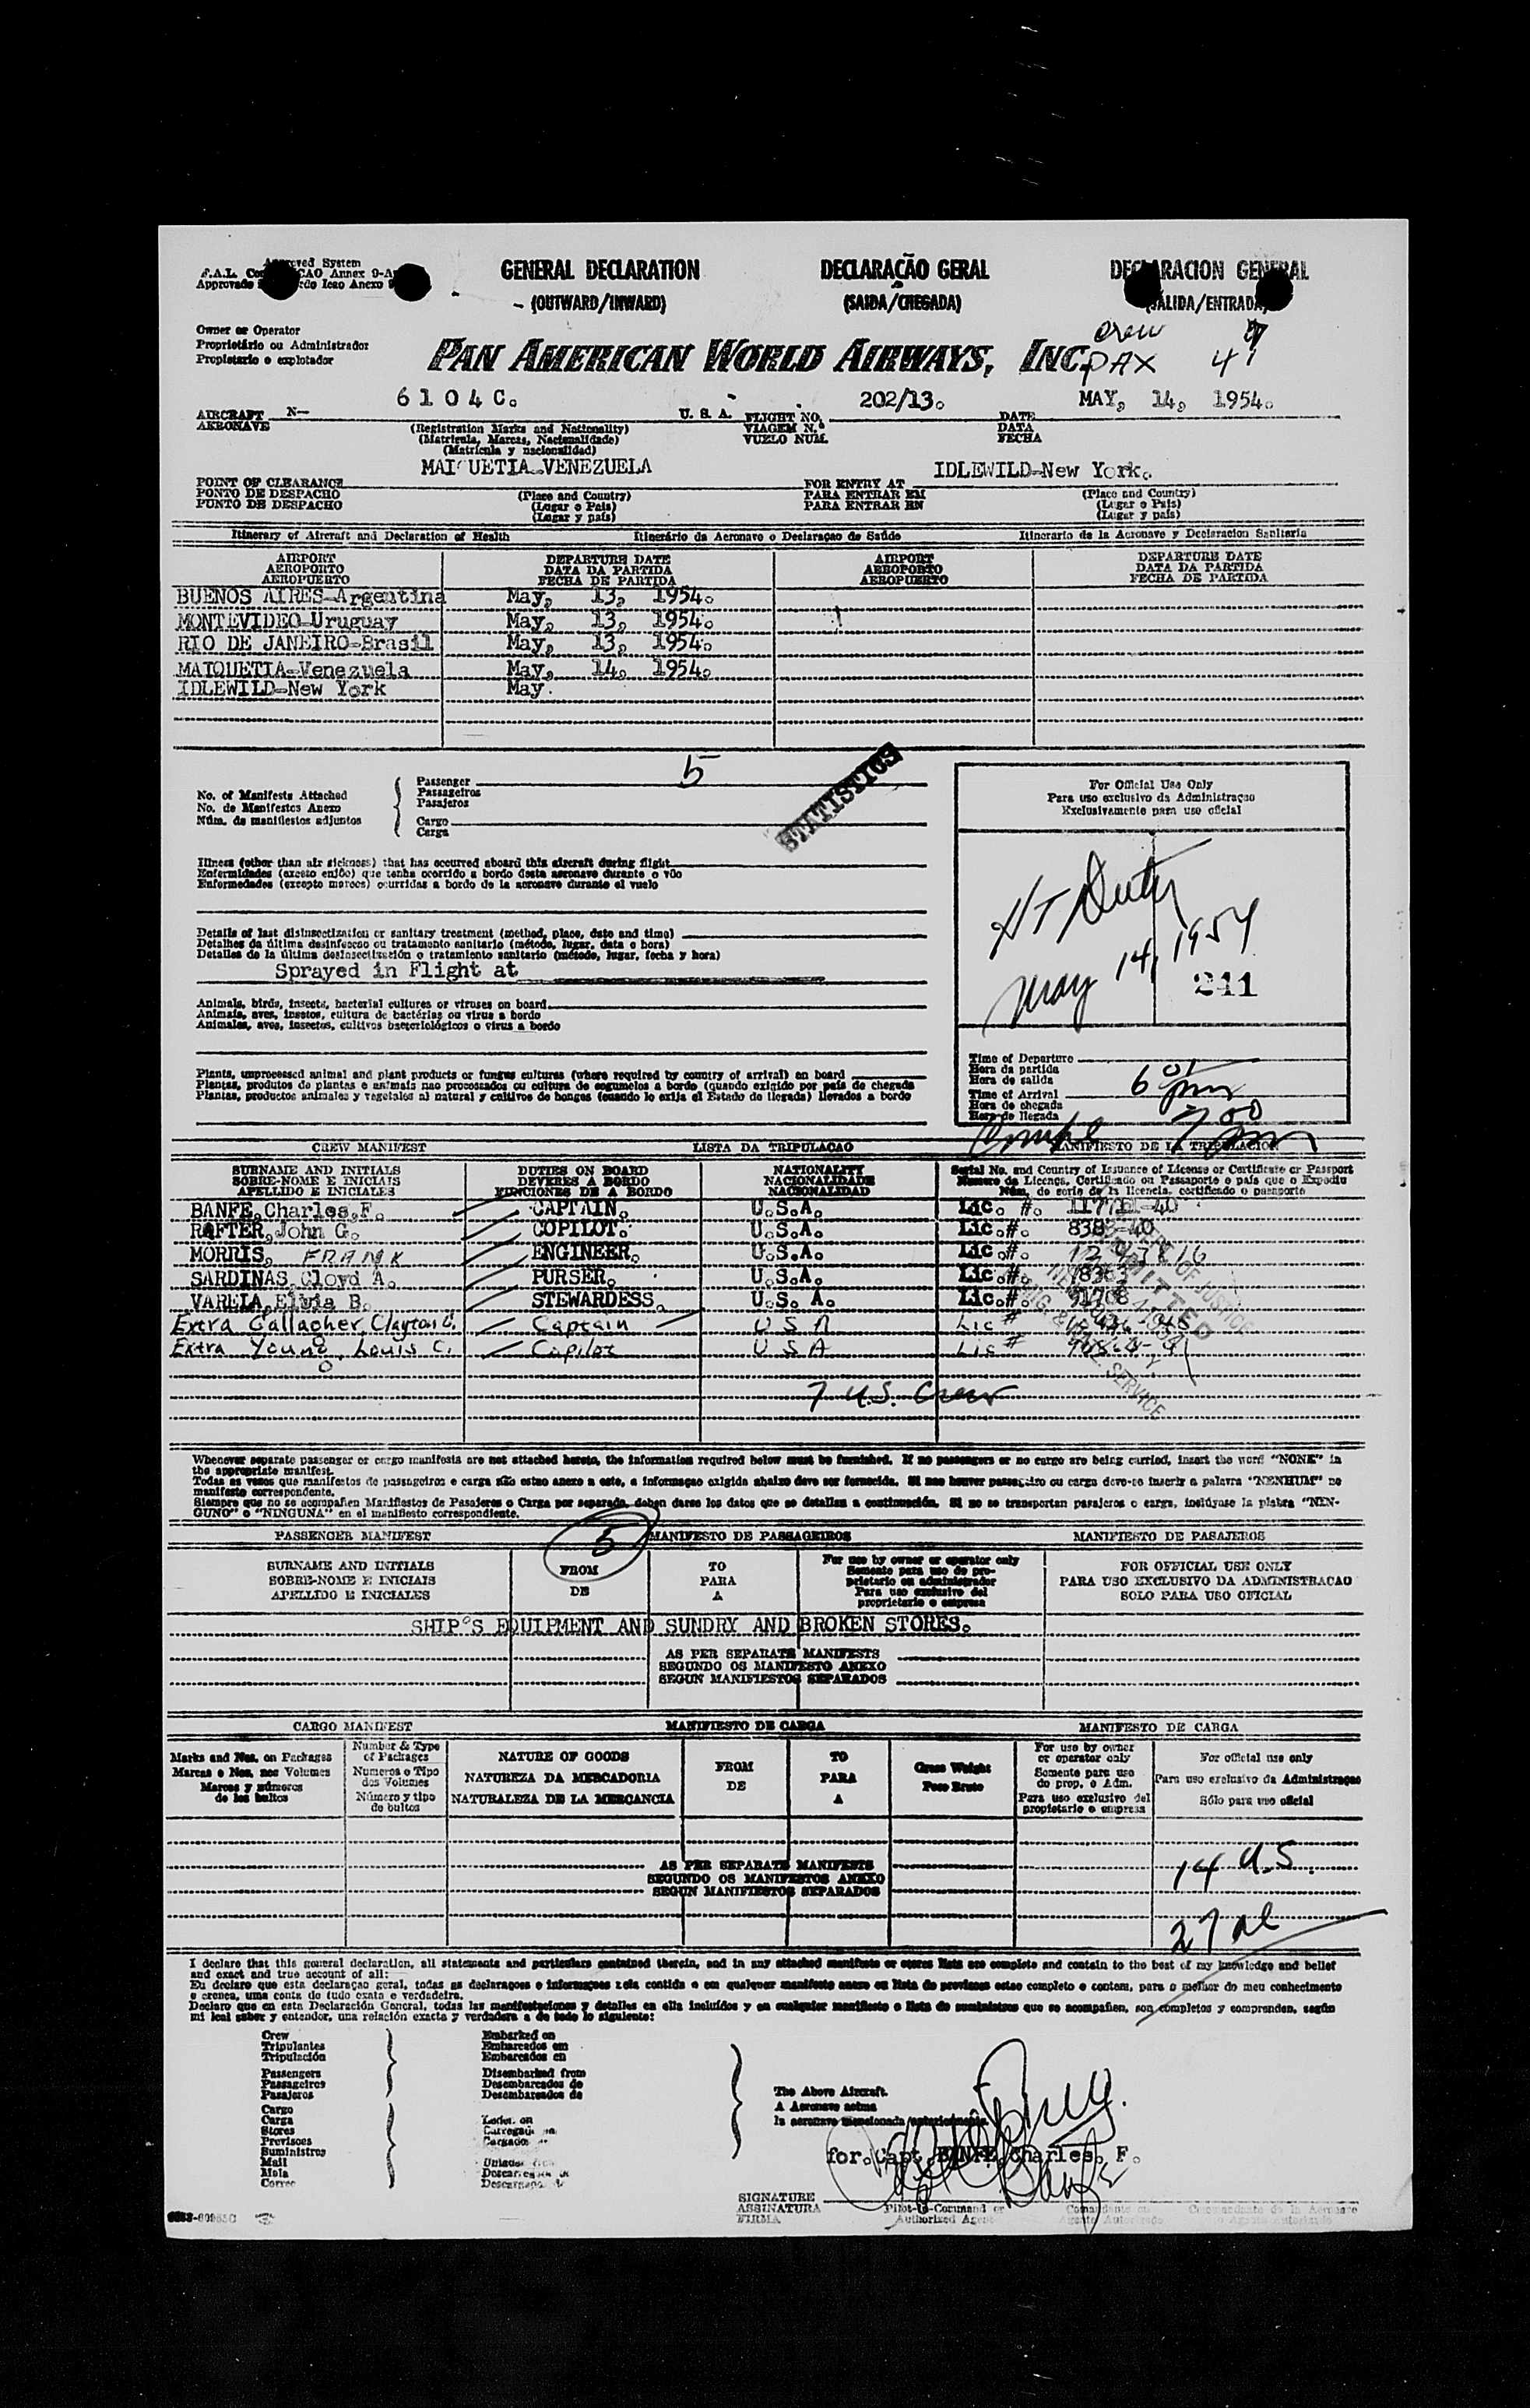 Approved System
F.A.L. CAO Annex 9-A
Approvado rdo Icao Anexo 9
GENERAL DECLARATION
(OUTWARD/INWARD)
DECLARAÇÃO GERAL
(SAIDA/CHEGADA)
DECLARACION GENERAL
(SALIDA/ENTRADA)
Owner or Operator
Proprietário ou Administrador
Propietario o explotador
PAN AMERICAN WORLD AIRWAYS, INC.
Crew 7
PAX 41
AIRCRAFT N— 6104C. U. S. A. FLIGHT NO. 202/13. DATE MAY, 14, 1954.
AERONAVE (Registration Marks and Nationality) VIAGEM N.º DATA
(Matricula, Marcas, Nacionalidade) VUELO NUM. FECHA
(Matricula y nacionalidad)
MAIQUETIA-VENEZUELA IDLEWILD-New York.
POINT OF CLEARANCE FOR ENTRY AT
PONTO DE DESPACHO (Place and Country) PARA ENTRAR EM (Place and Country)
PUNTO DE DESPACHO (Lugar e Pais) PARA ENTRAR EN (Lugar e Pais)
(Lugar y país) (Lugar y país)
Itinerary of Aircraft and Declaration of Health Itinerário da Aeronave e Declaraçao de Saúde Itinerario de la Aeronave y Declaracion Sanitaria
AIRPORT DEPARTURE DATE AIRPORT DEPARTURE DATE
AEROPORTO DATA DA PARTIDA AEROPORTO DATA DA PARTIDA
AEROPUERTO FECHA DE PARTIDA AEROPUERTO FECHA DE PARTIDA
BUENOS AIRES-Argentina May, 13, 1954.
MONTEVIDEO-Uruguay May, 13, 1954.
RIO DE JANEIRO-Brasil May, 13, 1954.
MAIQUETIA-Venezuela May, 14, 1954.
IDLEWILD-New York May.
No. of Manifests Attached
No. de Manifestos Anexo
Núm. de manifiestos adjuntos
Passenger 5
Passageiros
Pasajeros
Cargo
Carga
STATISTICS
Illness (other than air sickness) that has occurred aboard this aircraft during flight
Enfermidades (exceto enjôo) que tenha ocorrido a bordo desta aeronave durante o vôo
Enfermedades (excepto mareos) ocurridas a bordo de la aeronave durante el vuelo
Details of last disinsectization or sanitary treatment (method, place, date and time)
Detalhes da última desinfeccao ou tratamento sanitario (método, lugar, data e hora)
Detalles de la última desinsectización o tratamiento sanitario (método, lugar, fecha y hora)
Sprayed in Flight at
Animals, birds, insects, bacterial cultures or viruses on board
Animais, aves, insetos, cultura de bactérias ou virus a bordo
Animales, aves, insectos, cultivos bacteriológicos o virus a bordo
Plants, unprocessed animal and plant products or fungus cultures (where required by country of arrival) on board
Plantas, produtos de plantas e animais nao processados ou cultura de cogumelos a bordo (quando exigido por país de chegada
Plantas, productos animales y vegetales al natural y cultivos de hongos (cuando lo exija el Estado de llegada) llevados a bordo
For Official Use Only
Para uso exclusivo da Administraçao
Exclusivamente para uso oficial
May 14, 1954
211
Time of Departure
Hora da partida
Hora de salida
Time of Arrival 6 01 pm
Hora de chegada
Hora de llegada
7 00 pm
CREW MANIFEST LISTA DA TRIPULACAO MANIFIESTO DE LA TRIPULACION
SURNAME AND INITIALS DUTIES ON BOARD NATIONALITY Serial No. and Country of Issuance of License or Certificate or Passport
SOBRE-NOME E INICIAIS DEVERES A BORDO NACIONALIDADE Numero da Licença, Certificado ou Passaporte e país que o Expediu
APELLIDO E INICIALES FUNCIONES DE A BORDO NACIONALIDAD Núm. de serie de la licencia, certificado o pasaporte
BANFE, Charles, F. CAPTAIN. U.S.A. Lic. #.
RAFTER, John G. COPILOT. U.S.A. Lic.#.
MORRIS, FRANK ENGINEER. U.S.A. Lic.#.
SARDINAS, Cloyd A. PURSER. U.S.A. Lic.#.
VARELA, Elvia B. STEWARDESS. U.S. A. Lic.#.
Extra Gallagher, Clayton C. Captain U S A Lic #
Extra Young, Louis C. Copilot U S A Lic #
ADMITTED
7 U.S. Crew
Whenever separate passenger or cargo manifests are not attached hereto, the information required below must be furnished. If no passengers or no cargo are being carried, insert the word "NONE" in
the appropriate manifest.
Todas as vezes que manifestos de passageiros e carga não estao anexo a este, a informaçao exigida abaixo deve ser fornecida. Si nao houver passageiro ou carga deve-se inserir a palavra "NENHUM" no
manifesto correspondente.
Siempre que no se acompañen Manifiestos de Pasajeros o Carga por separado, deben darse los datos que se detallan a continuación. Si no se transportan pasajeros o carga, inclúyase la plabra "NIN-
GUNO" o "NINGUNA" en el manifiesto correspondiente.
PASSENGER MANIFEST 5 MANIFESTO DE PASSAGEIROS MANIFIESTO DE PASAJEROS
SURNAME AND INITIALS
SOBRE-NOME E INICIAIS
APELLIDO E INICIALES
FROM
DE
TO
PARA
A
For use by owner or operator only
Somente para uso de pro-
prietario ou administrador
Para uso exclusivo del
proprietario o empresa
FOR OFFICIAL USE ONLY
PARA USO EXCLUSIVO DA ADMINISTRACAO
SOLO PARA USO OFICIAL
SHIP'S EQUIPMENT AND SUNDRY AND BROKEN STORES.
AS PER SEPARATE MANIFESTS
SEGUNDO OS MANIFESTO ANEXO
SEGUN MANIFIESTOS SEPARADOS
CARGO MANIFEST MANIFIESTO DE CARGA MANIFESTO DE CARGA
Marks and Nos. on Packages
Marcas e Nos. nos Volumes
Marcas y números
de los bultos
Number & Type
of Packages
Numeros e Tipo
dos Volumes
Número y tipo
de bultos
NATURE OF GOODS
NATUREZA DA MERCADORIA
NATURALEZA DE LA MERCANCIA
FROM
DE
TO
PARA
A
Gross Weight
Peso Bruto
For use by owner
or operator only
Somente para uso
do prop. e Adm.
Para uso exclusivo del
propietario o empresa
For official use only
Para uso exclusivo da Administraçao
Sólo para uso oficial
AS PER SEPARATE MANIFESTS
SEGUNDO OS MANIFESTOS ANEXO
SEGUN MANIFIESTOS SEPARADOS
14 U.S.
27 al
I declare that this general declaration, all statements and particulars contained therein, and in any attached manifests or stores lists are complete and contain to the best of my knowledge and belief
and exact and true account of all:
Eu declaro que esta declaraçao geral, todas as declaraçoes e informaçoes nela contida e em qualquer manifesto anexo ou lista de provisoes estao completo e contem, para o melhor do meu conhecimento
e crenca, uma conta de tudo exata e verdadeira.
Declaro que en esta Declaración General, todas las manifestaciones y detalles en ella incluídos y en cualquier manifiesto o lista de suministros que se acompañen, son completos y comprenden, según
mi leal saber y entender, una relación exacta y verdadera a de todo lo siguiente:
Crew
Tripulantes
Tripulación
Passengers
Passageiros
Pasajeros
Cargo
Carga
Stores
Provisoes
Suministros
Mail
Mala
Correo
Embarked on
Embarcados em
Embarcados en
Disembarked from
Desembarcados de
Desembarcados de
The Above Aircraft.
A Aeronave acima
la aeronave mencionada anteriormente.
for. Capt. BANFE, Charles, F.
SIGNATURE
ASSINATURA
FIRMA
Pilot-in-Command or
Authorized Agent